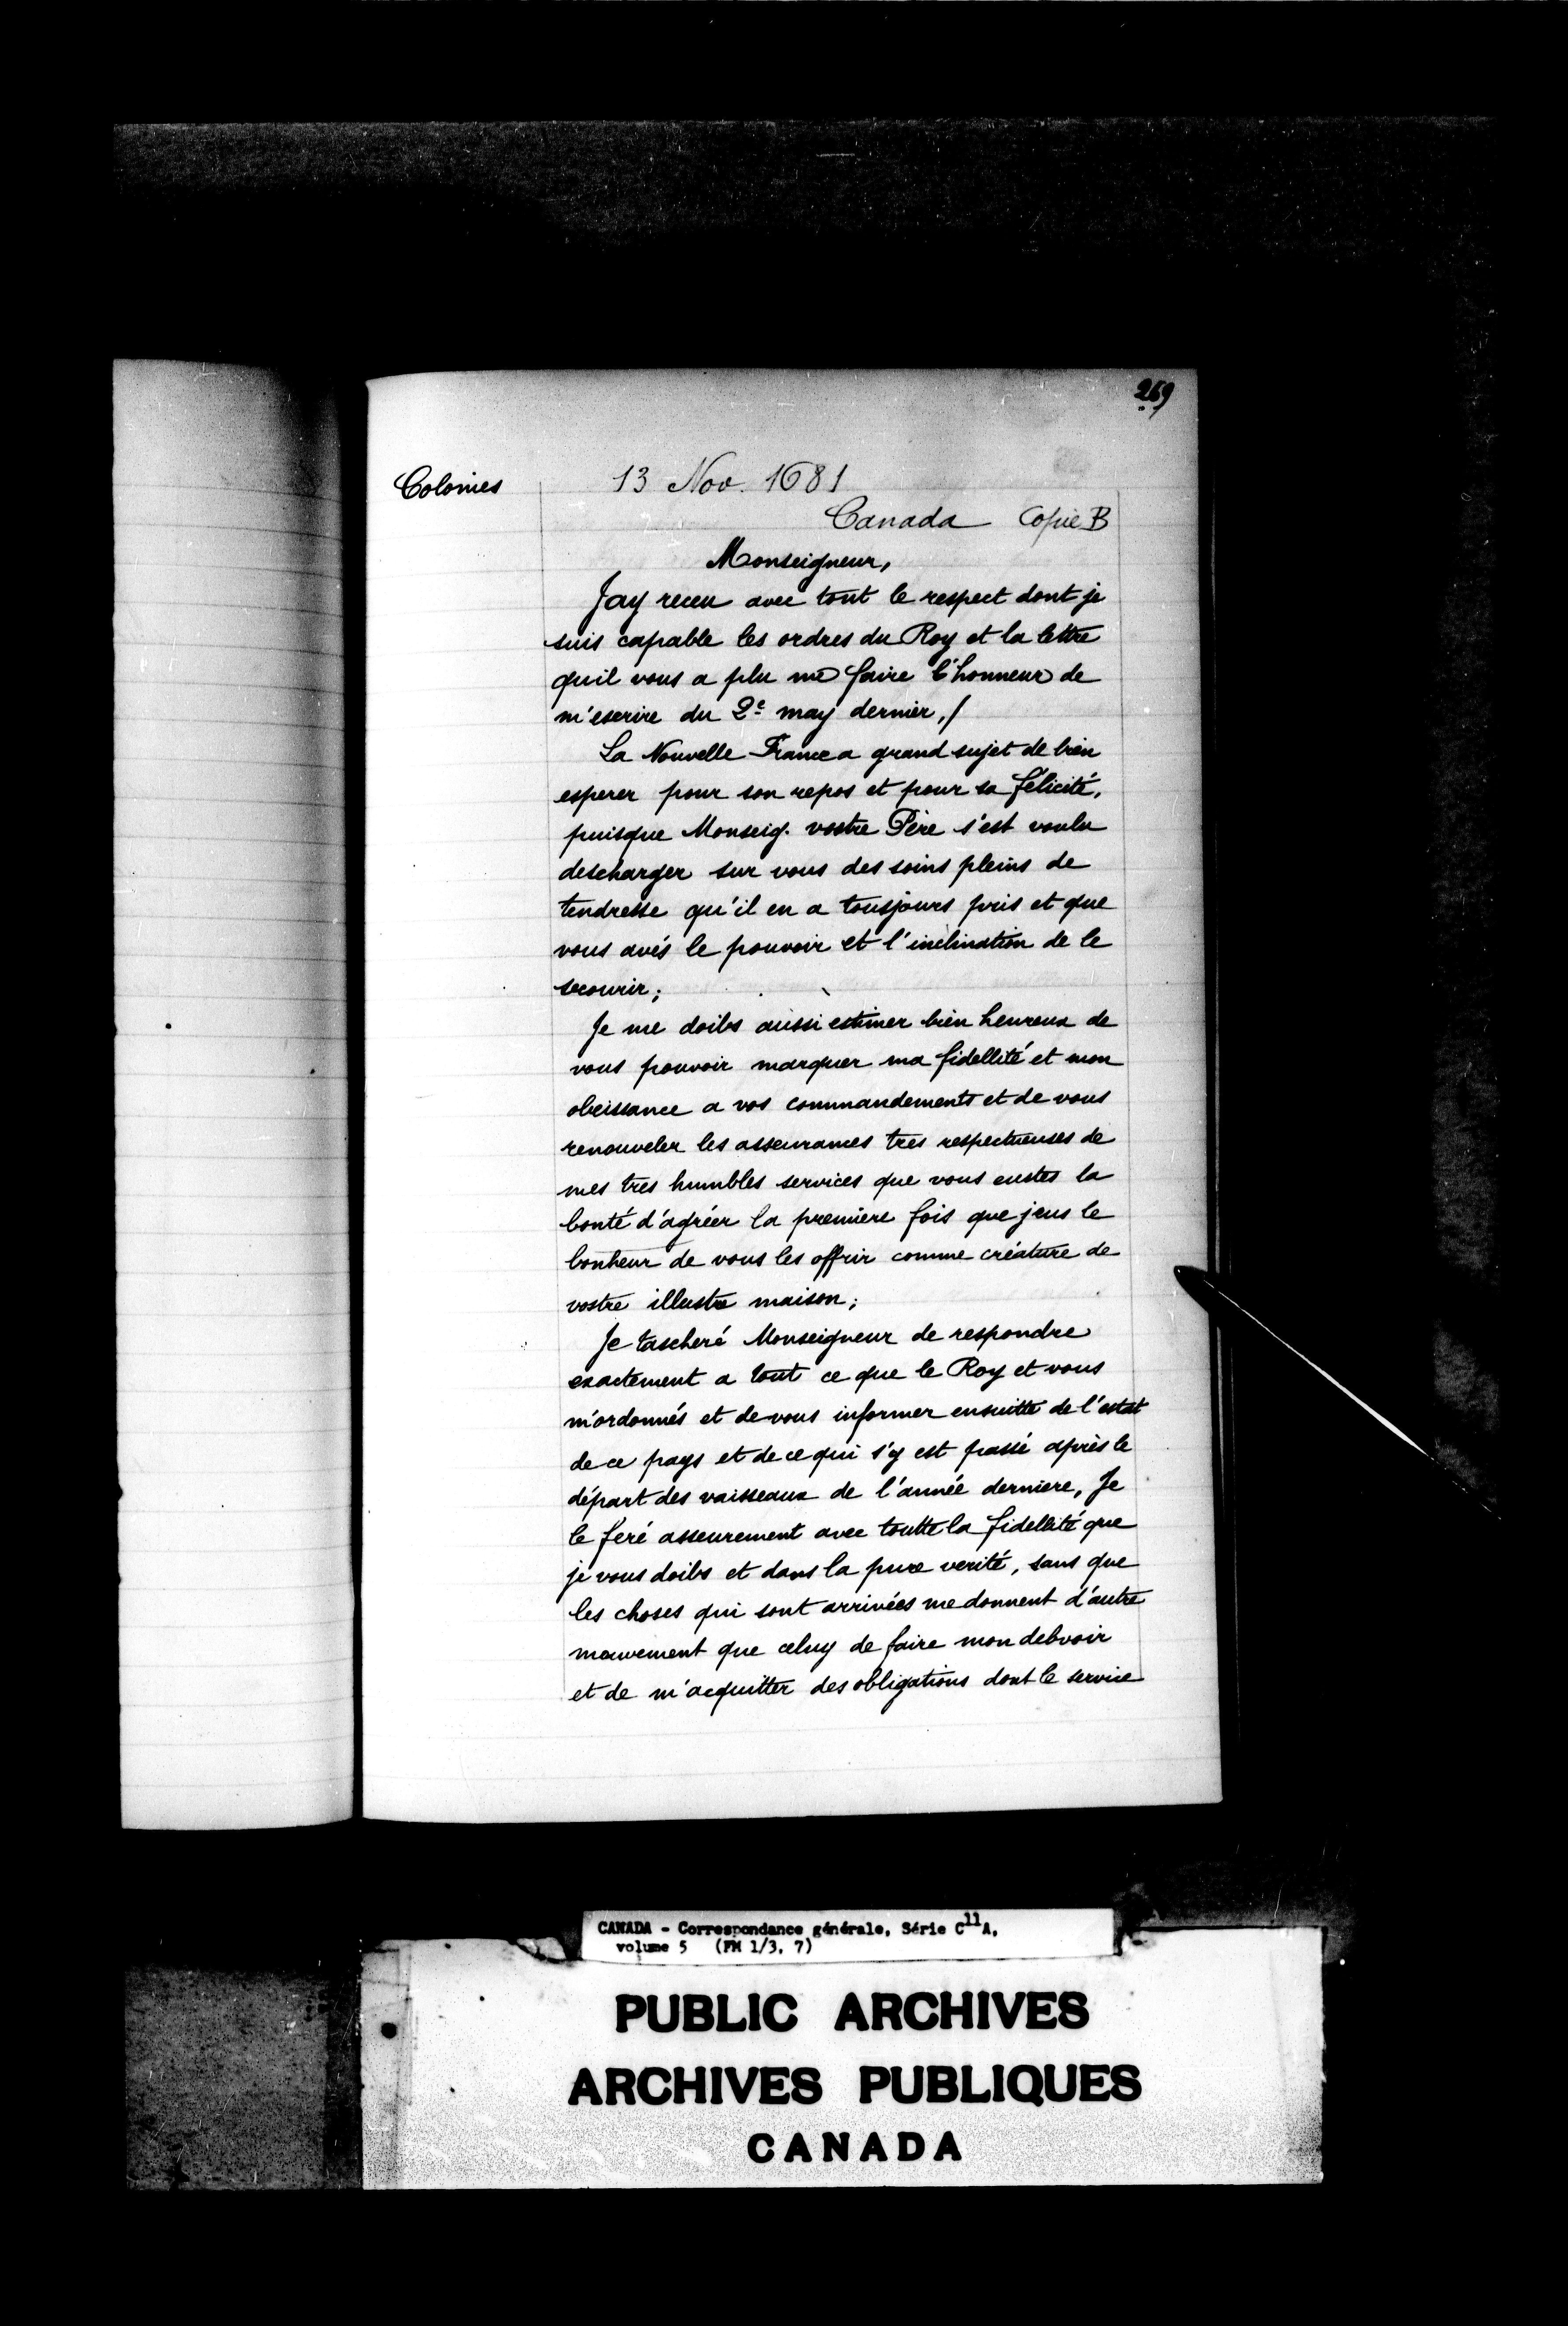 269
Colonies
13 Nov. 1681
Canada Copie B
Monseigneur,
Jay receu avec tout le respect dont je
suis capable les ordres du Roy et la lettre
quil vous a plu me faire l'honneur de
m'escrire du 2e may dernier,/
La Nouvelle France a grand sujet de bien
esperer pour son repos et pour sa félicité,
puisque Monseig. vostre Père s'est voulu
descharger sur vous des soins pleins de
tendresse qu'il en a tousjours pris et que
vous avés le pouvoir et l'inclination de le
secourir;
Je me doibs aussi estimer bien heureux de
vous pouvoir marquer ma fidellité et mon
obeissance a vos commandements et de vous
renouveler les asseurances tres respectueuses de
mes tres humbles services que vous eustes la
bonté d'agréer la premiere fois que jeus le
bonheur de vous les offrir comme créature de
vostre illustre maison;
Je tascheré Monseigneur de respondre
exactement a tout ce que le Roy et vous
m'ordonnés et de vous informer ensuitte de l'estat
de ce pays et de ce qui s'y est passé après le
départ des vaisseaux de l'année derniere, Je
le feré asseurement avec toutte la fidellité que
je vous doibs et dans la pure verité, sans que
les choses qui sont arrivées me donnent d'autre
mouvement que celuy de faire mon debvoir
et de m'acquitter des obligations dont le service
CANADA - Correspondance générale, Série C11A,
volume 5 (FM 1/3, 7)
PUBLIC ARCHIVES
ARCHIVES PUBLIQUES
CANADA